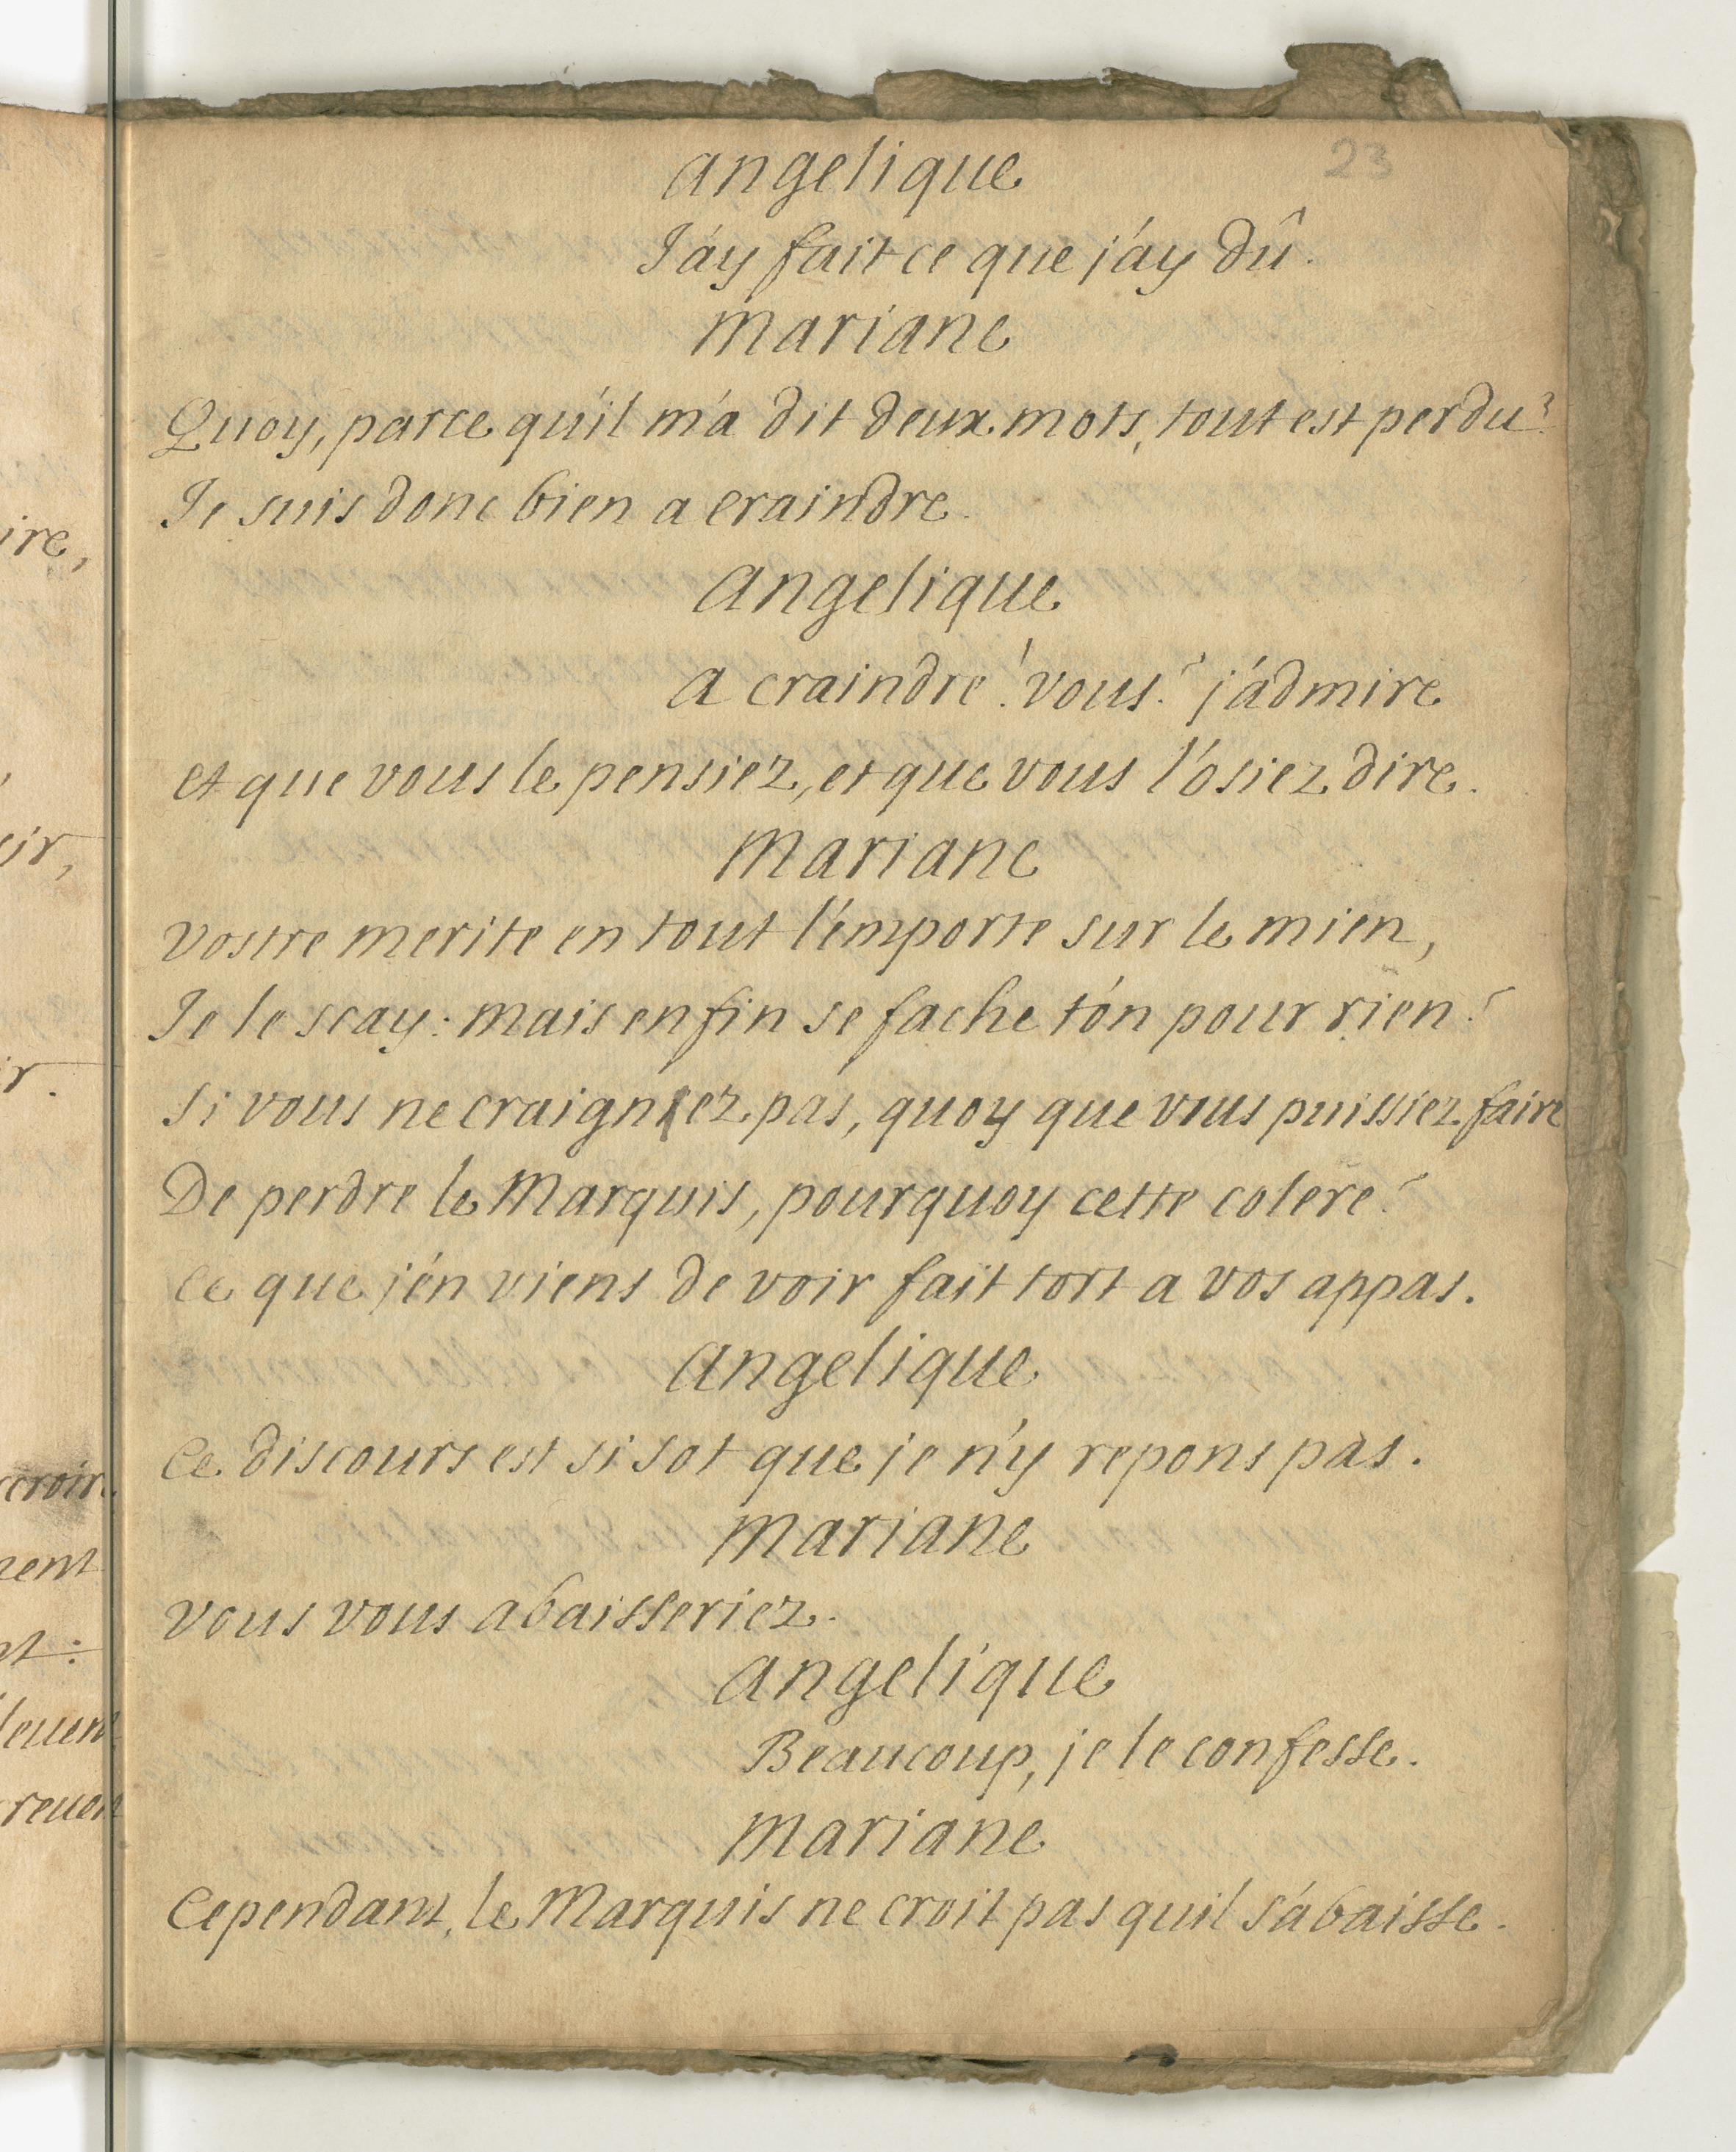 23
angelique
J'ay fait ce que j'ay dû.
mariane
Quoy, parce qu'il m'a dit deux mots, tout est perdu?
Je suis donc bien a craindre.
angelique
a craindre! vous? j'admire
et que vous le pensiez, et que vous l'osiez dire.
mariane
vostre merite en tout l'emporte sur le mien,
Je le scay: mais enfin se fache t'on pour rien?
si vous ne craignez pas, quoy que vous puissiez faire
De perdre le Marquis, pourquoy cette colere?
ce que j'en viens de voir fait tort a vos appas.
angelique
Ce discours est si sot que je n'y repons pas.
mariane
vous vous abaisseriez.
angelique
Beaucoup, je le confesse.
mariane
Cependant, le Marquis ne croit pas quil s'abaisse.
ire,
ir,
r.
croire
nent
nt:
leuent
reuen